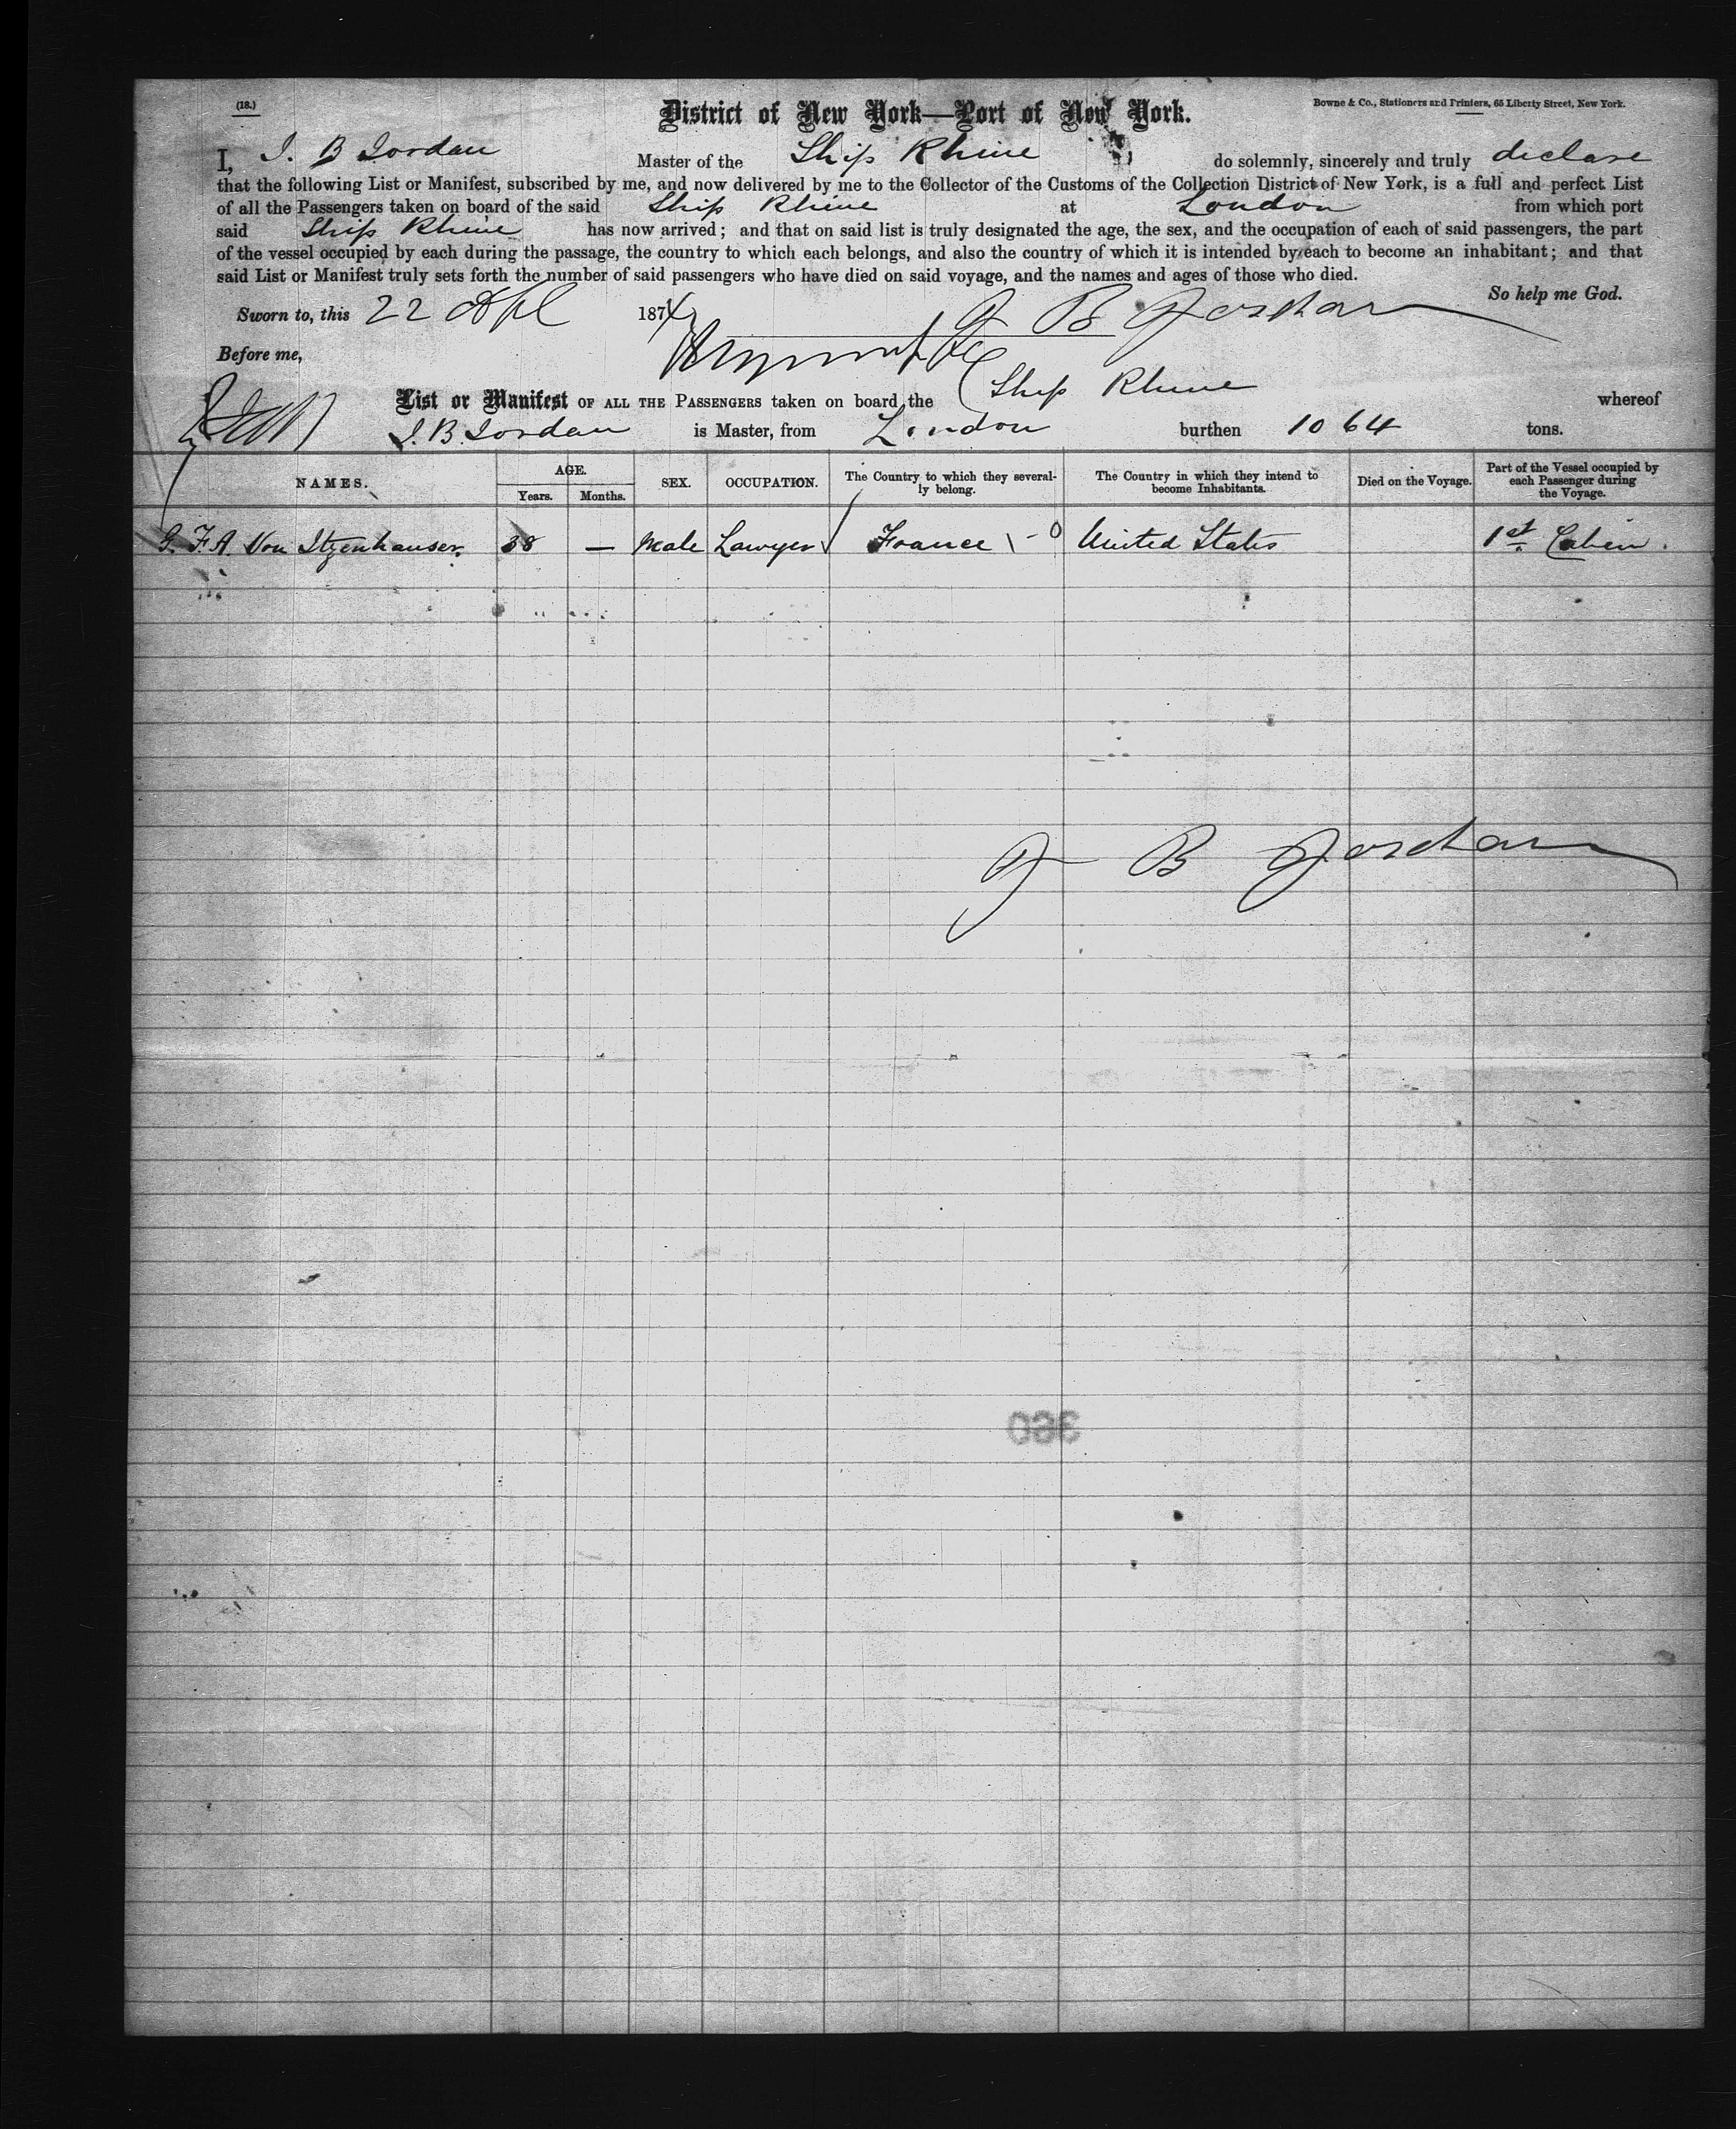 (18.)
District of New York—Port of New York.
Bowne & Co., Stationers and Printers, 65 Liberty Street, New York.
I, J. B Jordan Master of the Ship Rhine do solemnly, sincerely and truly declare
that the following List or Manifest, subscribed by me, and now delivered by me to the Collector of the Customs of the Collection District of New York, is a full and perfect List
of all the Passengers taken on board of the said Ship Rhine at London from which port
said Ship Rhine has now arrived; and that on said list is truly designated the age, the sex, and the occupation of each of said passengers, the part
of the vessel occupied by each during the passage, the country to which each belongs, and also the country of which it is intended by each to become an inhabitant; and that
said List or Manifest truly sets forth the number of said passengers who have died on said voyage, and the names and ages of those who died.
So help me God.
Sworn to, this 22 Apl 1874 J B Jordan
Before me,
List or Manifest OF ALL THE PASSENGERS taken on board the Ship Rhine whereof
J. B. Jordan is Master, from London burthen 1064 tons.
NAMES. AGE. Years. Months. SEX. OCCUPATION. The Country to which they severally belong. The Country in which they intend to become Inhabitants. Died on the Voyage. Part of the Vessel occupied by each Passenger during the Voyage.
G. F. A. Von Itzenhauser. 38 — Male Lawyer France United States 1st Cabin.
J B Jordan
360